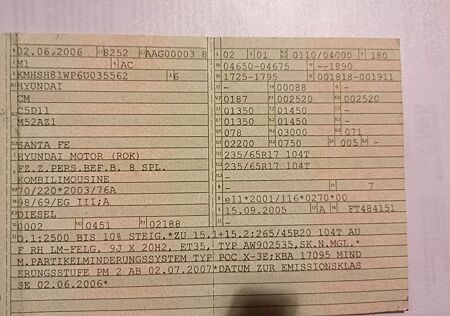 02.06.2006 8252 AAG00003 8
M1 AC
KMHSH81WP6U035562 6
HYUNDAI
CM
C5D11
M52AZ1
SANTA FE
HYUNDAI MOTOR (ROK)
FZ.Z.PERS.BEF.B. 8 SPL.
KOMBILIMOUSINE
70/220*2003/76A
98/69/EG III;A
DIESEL
0002 0451 02188
02 01 0110/04000 180
04650-04675 --1890
1725-1795 001818-001911
- 00088 - -
0187 002520 002520
01350 01450 -
01350 01450 -
078 03000 071
02200 0750 005 -
235/65R17 104T
235/65R17 104T
-
- 7
e11*2001/116*0270*00
15.09.2005 A FT484151
O.1:2500 BIS 10% STEIG.*ZU 15.1+15.2:265/45R20 104T AU
F RH LM-FELG. 9J X 20H2, ET35, TYP AW902535,SK.N.MGL.*
M.PARTIKELMINDERUNGSSYSTEM TYP POC X-3E;KBA 17095 MIND
ERUNGSSTUFE PM 2 AB 02.07.2007*DATUM ZUR EMISSIONSKLAS
SE 02.06.2006*